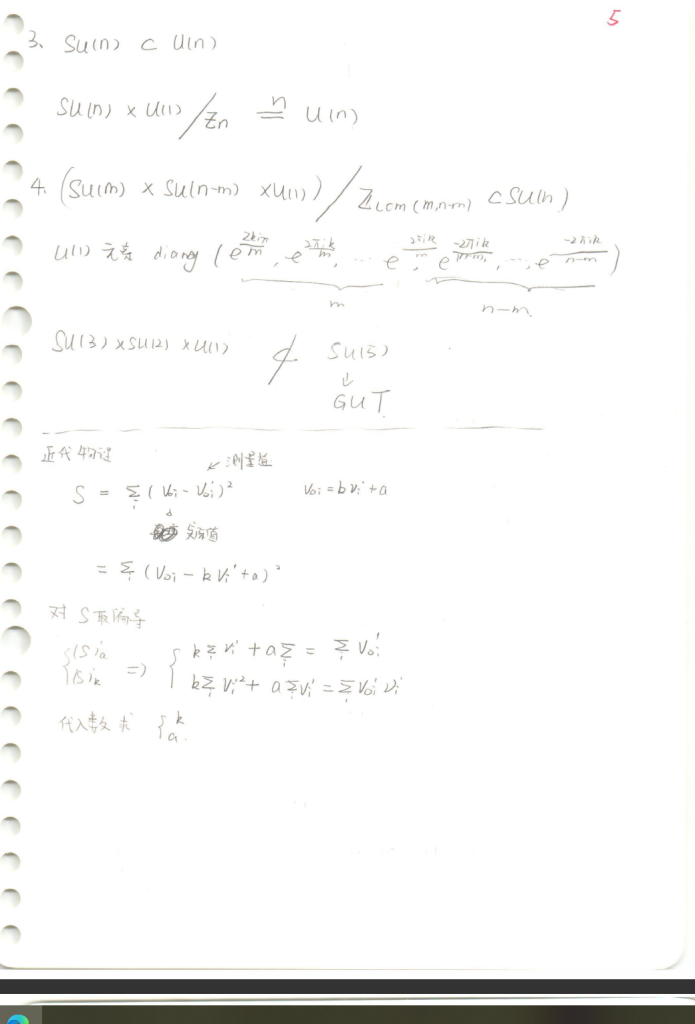 5
3、 SU(n) ⊂ U(n)
SU(n) × U(1) / Zn ≅ U(n)
4. (SU(m) × SU(n-m) × U(1)) / Z_{Lcm(m,n-m)} ⊂ SU(n)
U(1) 元素 diang ( e^{2kiπ/m}, e^{2πik/m}, … e^{2πik/m}, e^{-2πik/(n-m)}, …, e^{-2πik/(n-m)} )
m
n-m
SU(3) × SU(2) × U(1) ⊄ SU(5)
↓
GUT
近代物理
↙ 测量值
S = Σ_i (V_{0i} - V_{0i}')² V_{0i} = kν_i' + a
实际值
= Σ_i (V_{0i} - kν_i' + a)²
对 S 取偏导
{ k Σ_i ν_i' + a Σ_i = Σ_i V_{0i}'
⇒ { k Σ_i ν_i'² + a Σ_i ν_i' = Σ_i V_{0i}' ν_i'
代入数求 { k
a.